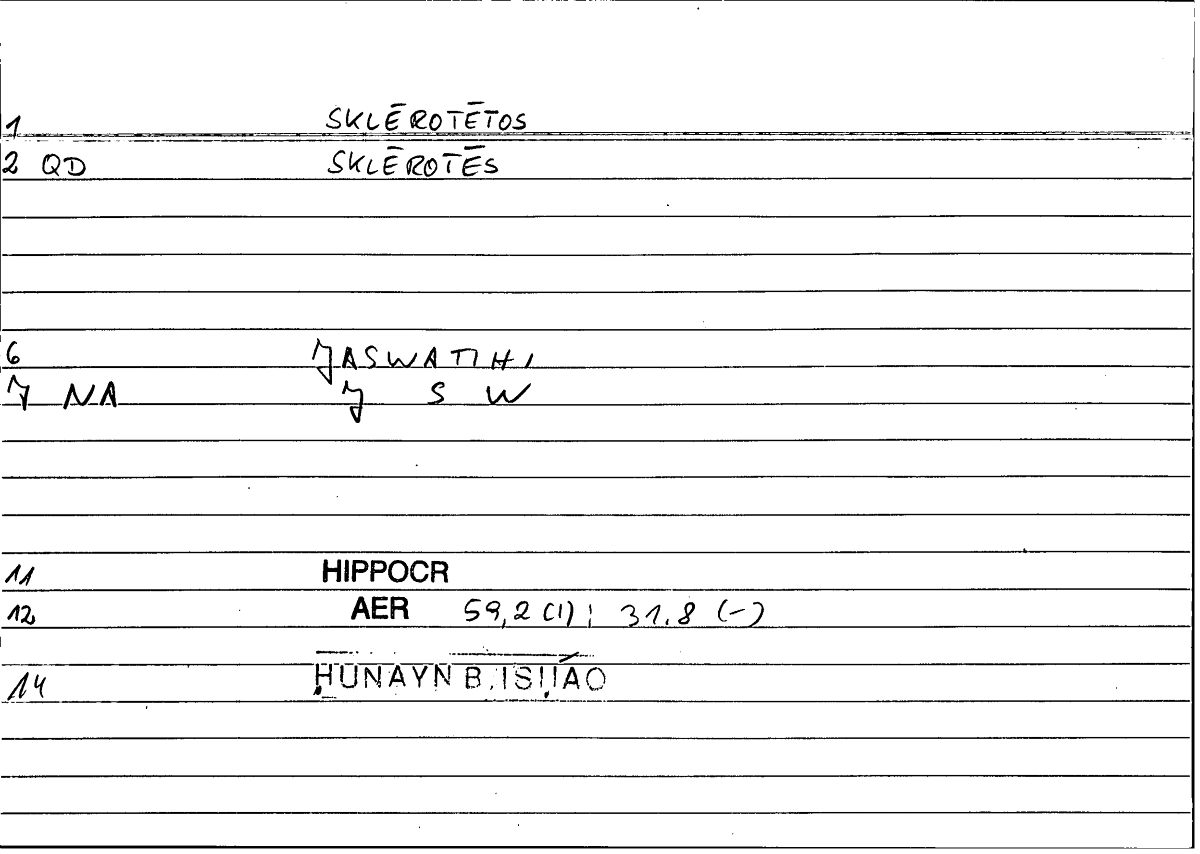 1 SKLĒROTĒTOS
2 QD SKLĒROTĒS
6 JASWATIHI
7 NA J S W
11 HIPPOCR
12 AER 59,2 (1) ; 31.8 (-)
14 ḤUNAYN B. ISḤĀQ